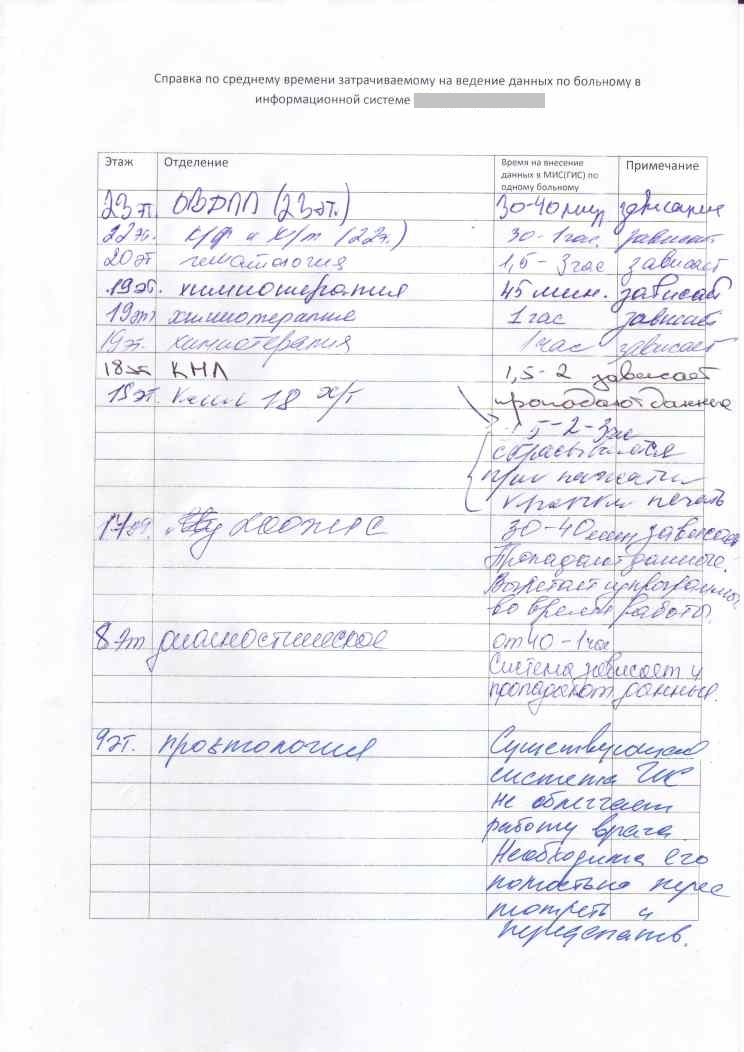 Справка по среднему времени затрачиваемому на ведение данных по больному в
информационной системе
Этаж Отделение Время на внесение данных в МИС(ГИС) по одному больному Примечание
23 эт. (23 эт.) 30-40 мин зависание
22 эт. к/ф и х/т (22э.) 30-1час, зависает
20 эт гематология 1,5 - 3 час зависает
19 эт. химиотерапия 45 мин. зависает
19 эт химиотерапия 1 час зависает
19 эт. химиотерапия 1 час зависает
18 эт КНЛ 1,5 - 2 зависает
18 х/т пропадают данные
5-2-3 час
сбрасывается
при нажатии
кнопки печать
17 эт. 30-40 мин зависает
Пропадают данные.
Вылетает из программы
во время работы.
8 эт диагностическое от 40 - 1 час
Система зависает и
пропадают данные.
9 эт. проктология Существующая
система
не облегчает
работу врача.
Необходима его
полностью пере
смотреть и